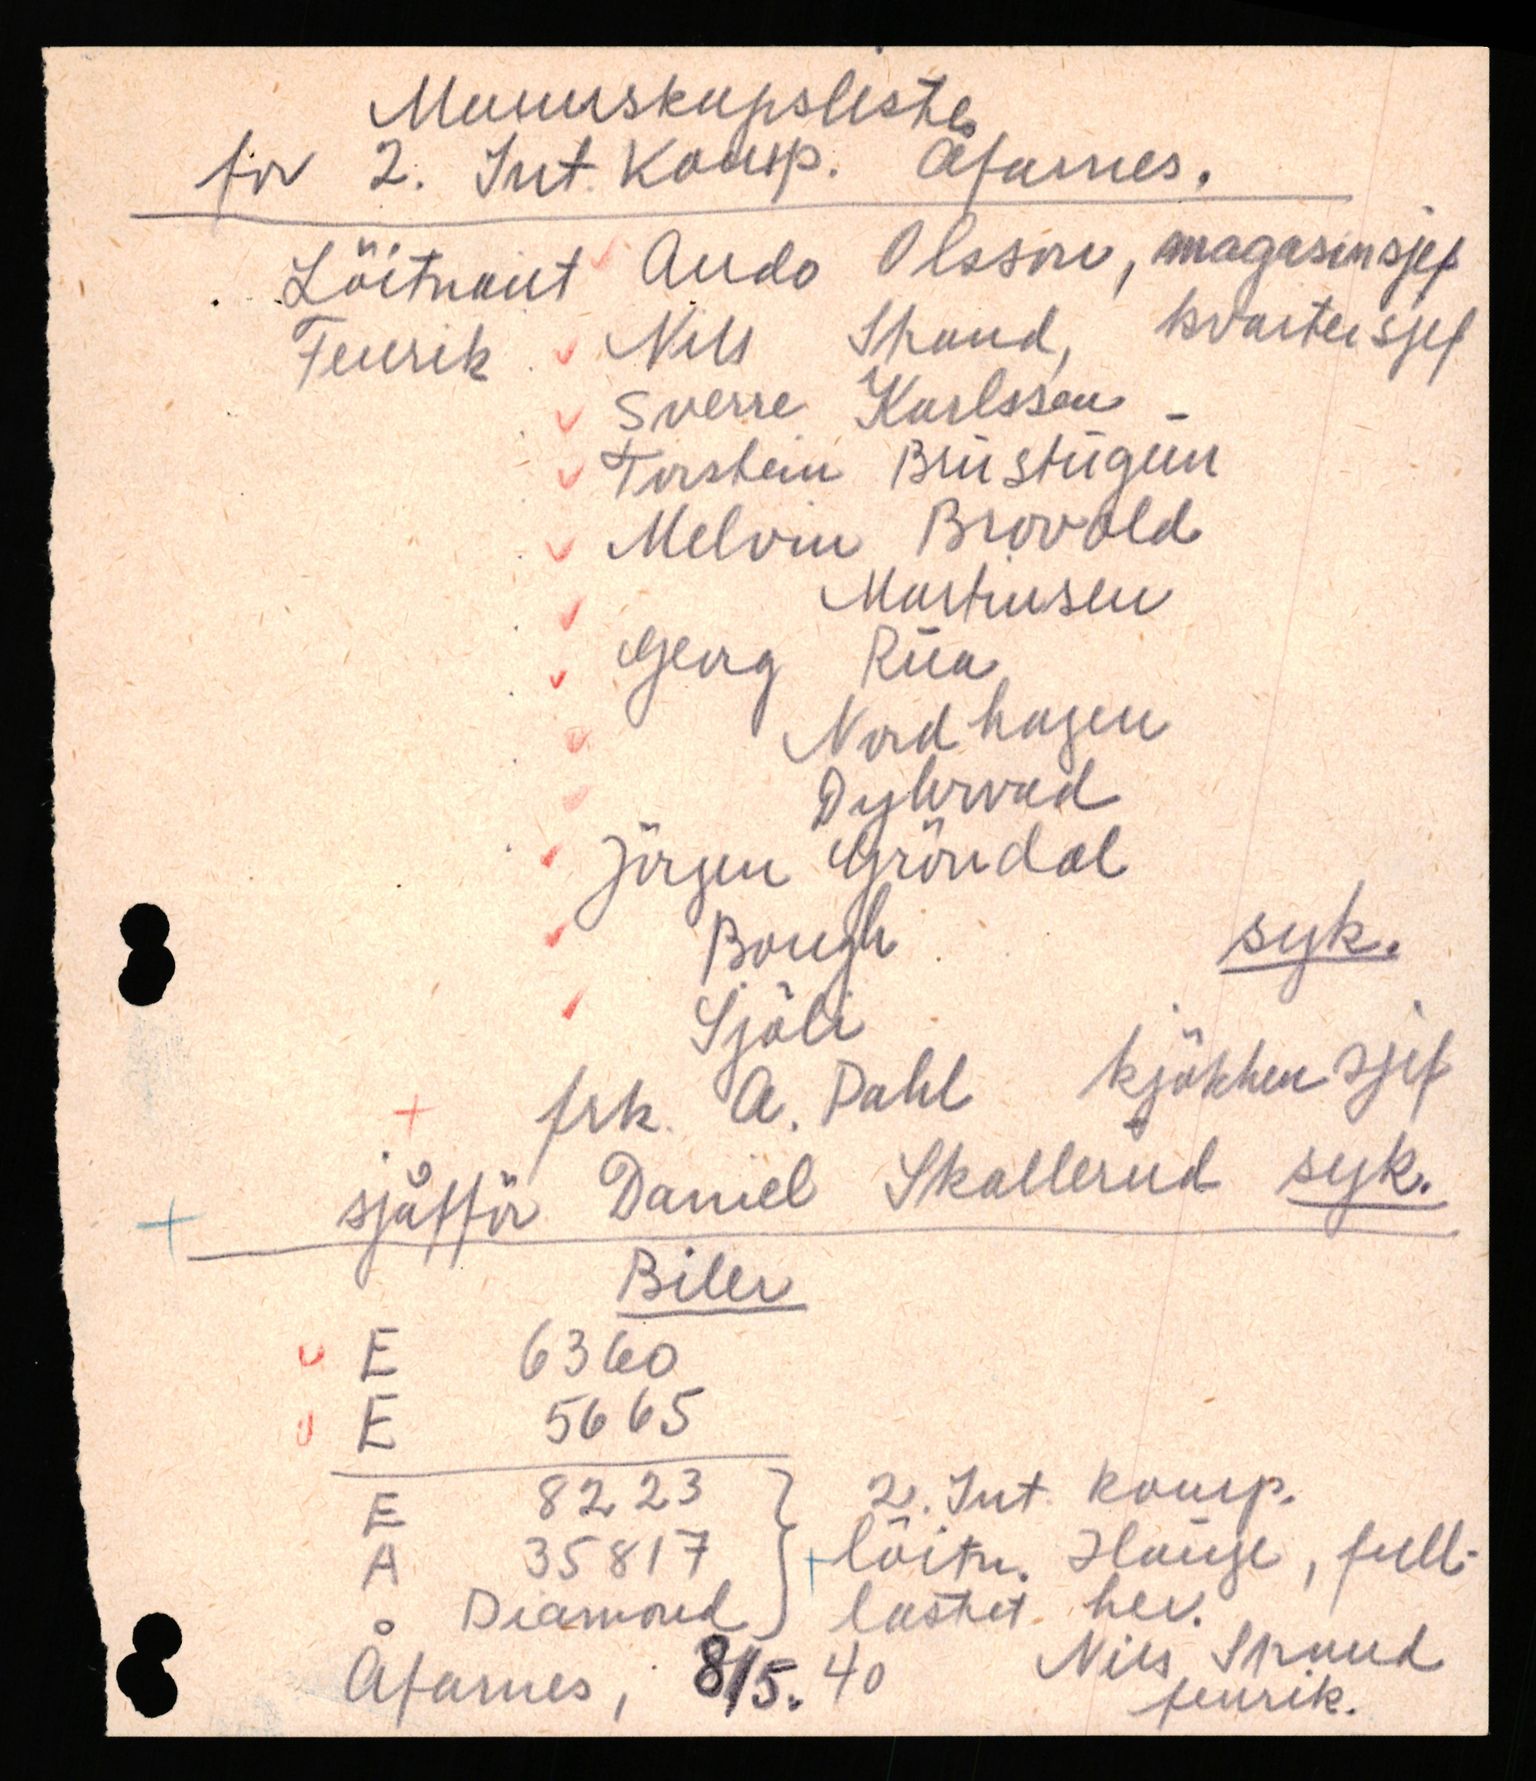 Mannskapsliste
for 2. Int. Komp. Åfarnes.
Löitnant Ando Olsson, magasinsjef
Fenrik Nils Strand, kvartersjef
Sverre Karlssen
Torstein Brustugun
Melvin Brovold
Martinsen
Georg Rua
Nordhagen
Dyhrvad
Jörgen Gröndal
Bough syk.
Sjöli
frk. A. Dahl kjökkensjef
sjåfför Daniel Skallerud syk.
Biler
E 6360
E 5665
E 8223 2. Int. komp.
A 35817 löitn. Hauge, full-
Diamond lastet her.
Åfarnes, 8/5. 40 Nils Strand
fenrik.